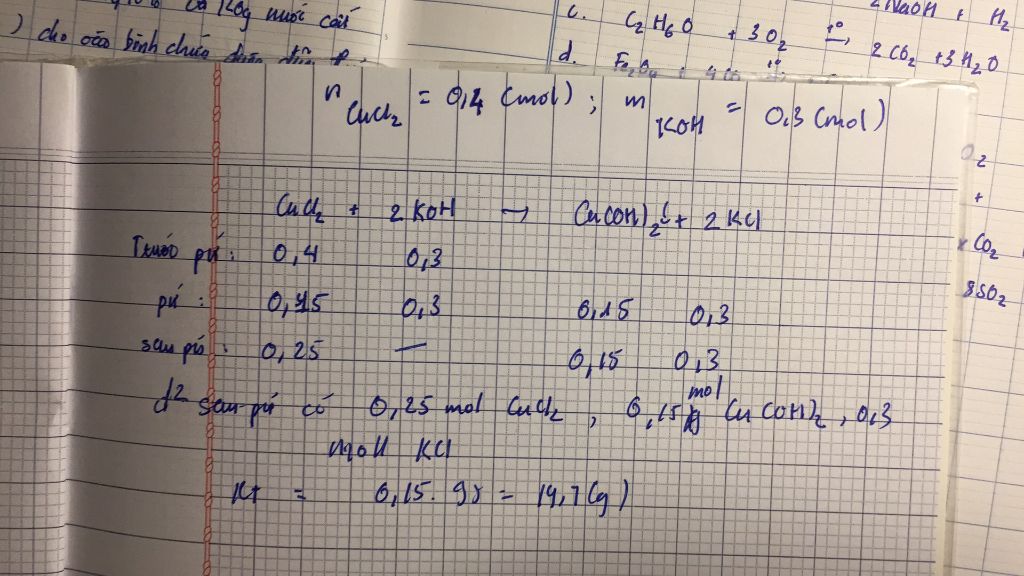 cả 20g nước cất
) cho vào bình chứa
c. C₂H₆O + 3O₂ t° →
2CO₂ + 3H₂O
2NaOH + H₂
d.
n CuCl₂ = 0,4 (mol) ; m KOH = 0.3 (mol)
CuCl₂ + 2KOH → Cu(OH)₂↓ + 2KCl
Trước pứ : 0,4 0,3
pứ : 0,15 0,3 0,15 0,3
sau pứ : 0,25 — 0,15 0,3
d² sau pứ có 0,25 mol CuCl₂ , 0,15 mol Cu(OH)₂ , 0,3
moll KCl
Kt = 0,15. 98 = 14,7 (g)
O₂
+
CO₂
8SO₂